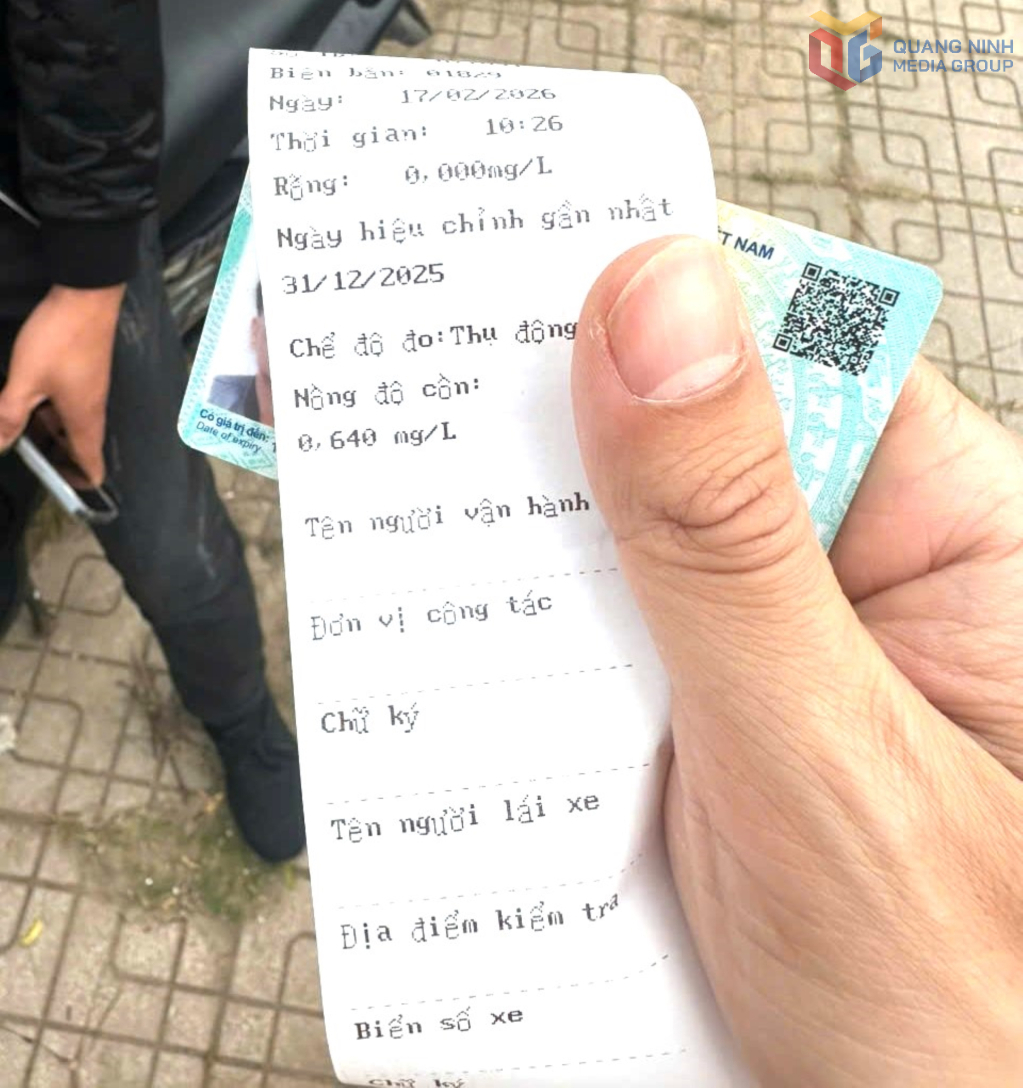 QUANG NINH
MEDIA GROUP
Biên bản: 01829
Ngày: 17/02/2026
Thời gian: 10:26
Rỗng: 0,000mg/L
Ngày hiệu chỉnh gần nhất
31/12/2025
Chế độ đo:Thụ động
Nồng độ cồn:
0,640 mg/L
Tên người vận hành
Đơn vị công tác
Chữ ký
Tên người lái xe
Địa điểm kiểm tra
Biển số xe
Chữ ký
ỆT NAM
Có giá trị đến:
Date of expiry